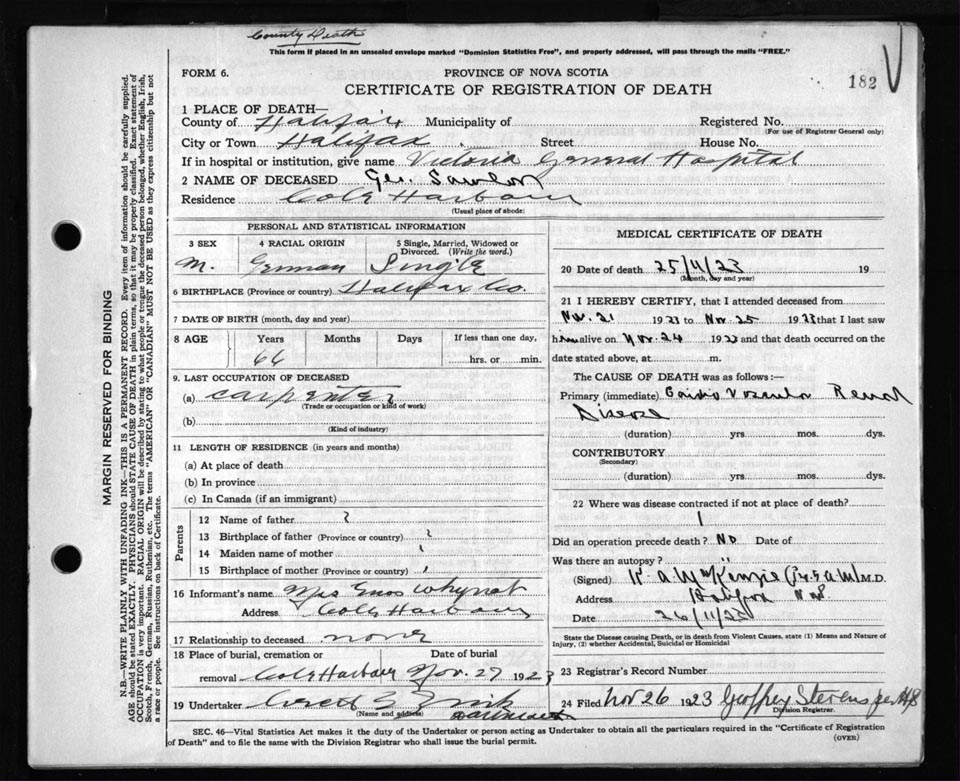 County Death
This form if placed in an unsealed envelope marked "Dominion Statistics Free", and properly addressed, will pass through the mails "FREE."
FORM 6.
PROVINCE OF NOVA SCOTIA
182
CERTIFICATE OF REGISTRATION OF DEATH
1 PLACE OF DEATH—
County of Halifax Municipality of Registered No.
(For use of Registrar General only)
City or Town Halifax Street House No.
If in hospital or institution, give name Victoria General Hospital
2 NAME OF DECEASED Geo.
Residence Cole Harbour
(Usual place of abode)
PERSONAL AND STATISTICAL INFORMATION
3 SEX 4 RACIAL ORIGIN 5 Single, Married, Widowed or Divorced. (Write the word.)
M. German Single
6 BIRTHPLACE (Province or country) Halifax Co.
7 DATE OF BIRTH (month, day and year)
8 AGE Years Months Days If less than one day,
66 hrs. or min.
9. LAST OCCUPATION OF DECEASED
(a) Carpenter
(Trade or occupation or kind of work)
(b)
(Kind of industry)
11 LENGTH OF RESIDENCE (in years and months)
(a) At place of death
(b) In province
(c) In Canada (if an immigrant)
Parents
12 Name of father ?
13 Birthplace of father (Province or country) ?
14 Maiden name of mother
15 Birthplace of mother (Province or country)
16 Informant's name Mrs Whynot
Address Cole Harbour
17 Relationship to deceased none
18 Place of burial, cremation or removal Date of burial
Cole Harbour Nov. 27 1923
19 Undertaker
(Name and address)
MEDICAL CERTIFICATE OF DEATH
20 Date of death 25/11/23 19
(Month, day and year)
21 I HEREBY CERTIFY, that I attended deceased from
Nov. 21 1923 to Nov. 25 1923 that I last saw
him alive on Nov. 24 1923 and that death occurred on the
date stated above, at m.
The CAUSE OF DEATH was as follows:—
Primary (immediate) Cardio Vascular Renal
Disease
(duration) yrs mos. dys.
CONTRIBUTORY
(Secondary)
(duration) yrs mos. dys.
22 Where was disease contracted if not at place of death?
Did an operation precede death? No Date of
Was there an autopsy?
(Signed) K. A. McKenzie M.D.
Address Halifax N.S.
Date 26/11/23
State the Disease causing Death, or in death from Violent Causes, state (1) Means and Nature of
Injury, (2) whether Accidental, Suicidal or Homicidal
23 Registrar's Record Number
24 Filed Nov 26 1923 Geoffrey Stevens
Division Registrar.
SEC. 46—Vital Statistics Act makes it the duty of the Undertaker or person acting as Undertaker to obtain all the particulars required in the "Certificate of Registration
of Death" and to file the same with the Division Registrar who shall issue the burial permit.
(OVER)
MARGIN RESERVED FOR BINDING
N.B.—WRITE PLAINLY WITH UNFADING INK—THIS IS A PERMANENT RECORD. Every item of information should be carefully supplied.
AGE should be stated EXACTLY. PHYSICIANS should STATE CAUSE OF DEATH in plain terms, so that it may be properly classified. Exact statement of
OCCUPATION is very important. RACIAL ORIGIN will be described by stating to what people or tongue the deceased person belonged, whether English, Irish,
Scotch, French, German, Russian, Ruthenian, etc. The terms "AMERICAN" or "CANADIAN" MUST NOT BE USED as they express citizenship but not
a race or people. See instructions on back of Certificate.